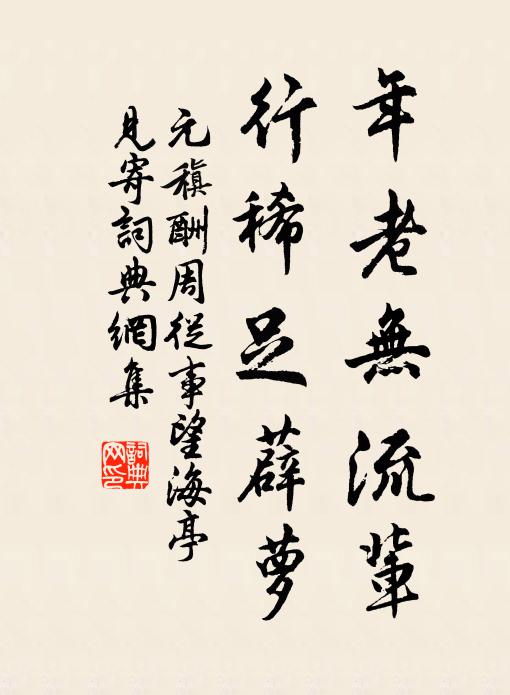 年老無流輩
行稀足薜夢
元稹酬周從事望海亭
見寄詞典網集
詞典
网印